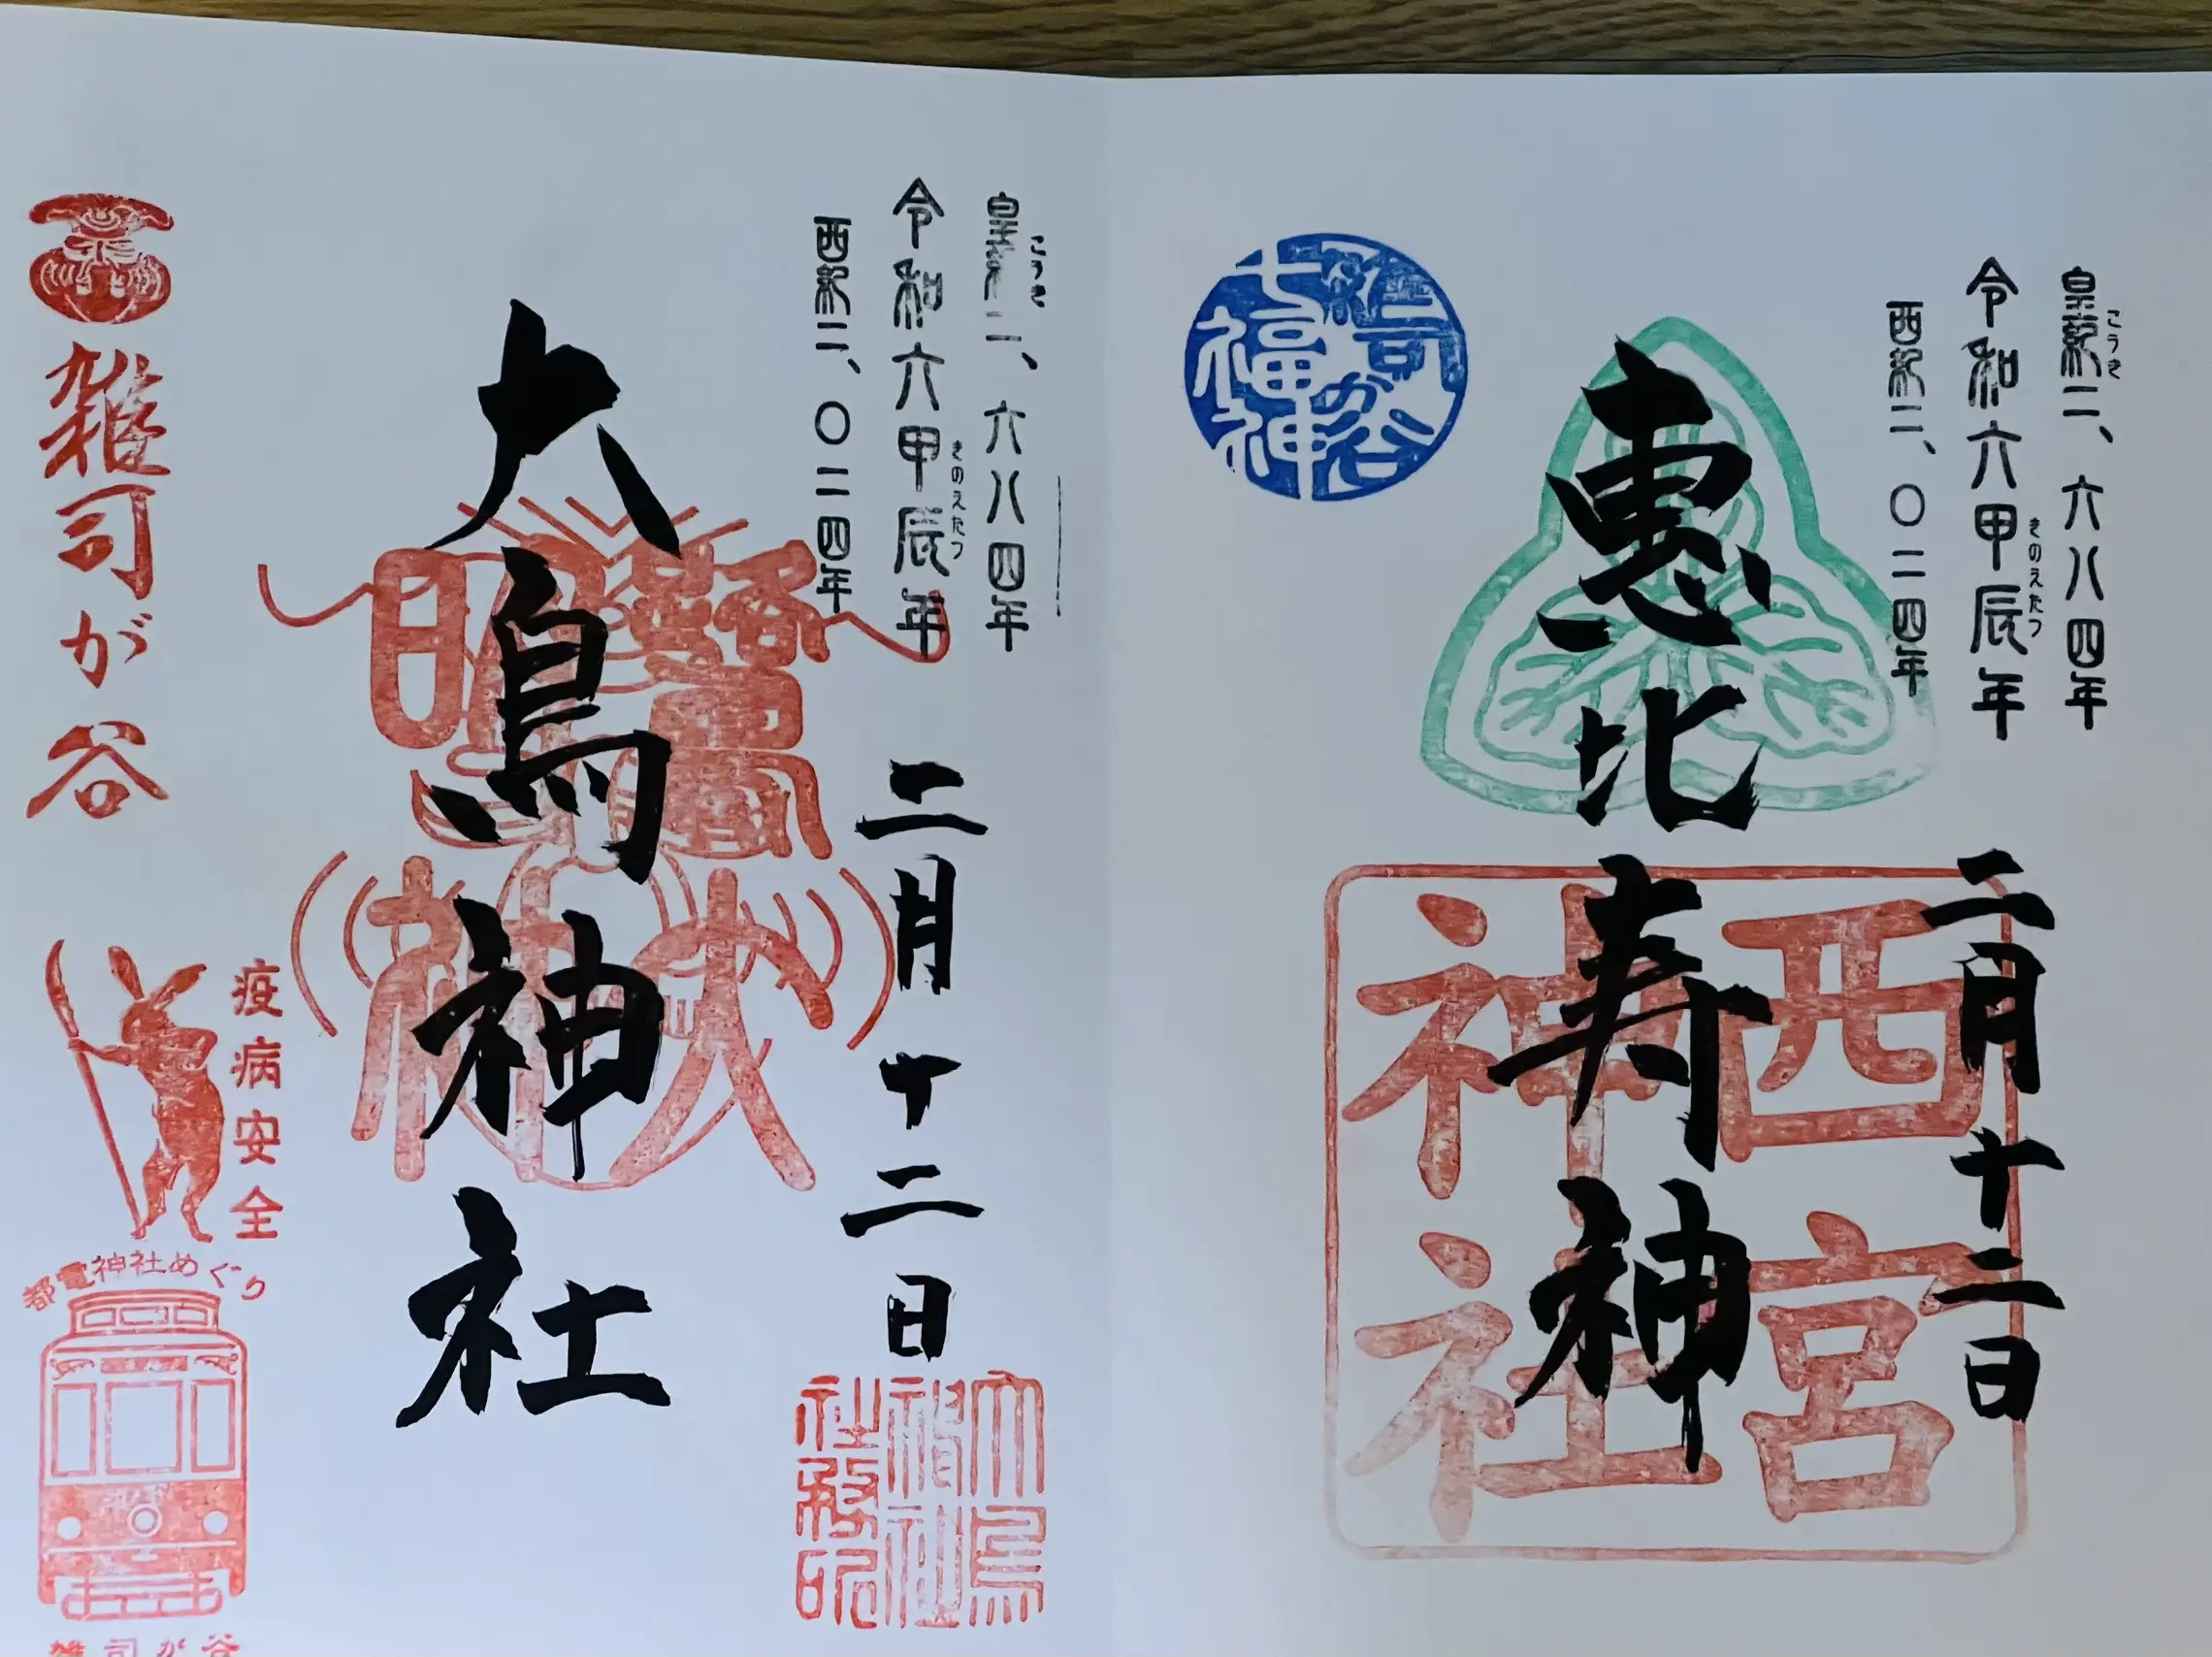 皇紀二、六八四年
こうき
令和六甲辰年
きのえたつ
西紀二、〇二四年
二月十二日
恵比寿神
西宮
神社
雑司が谷
七福神
皇紀二、六八四年
こうき
令和六甲辰年
きのえたつ
西紀二、〇二四年
二月十二日
大鳥神社
大鳥
神社
社務印
雑司が谷
疫病安全
都電神社めぐり
雑司が谷